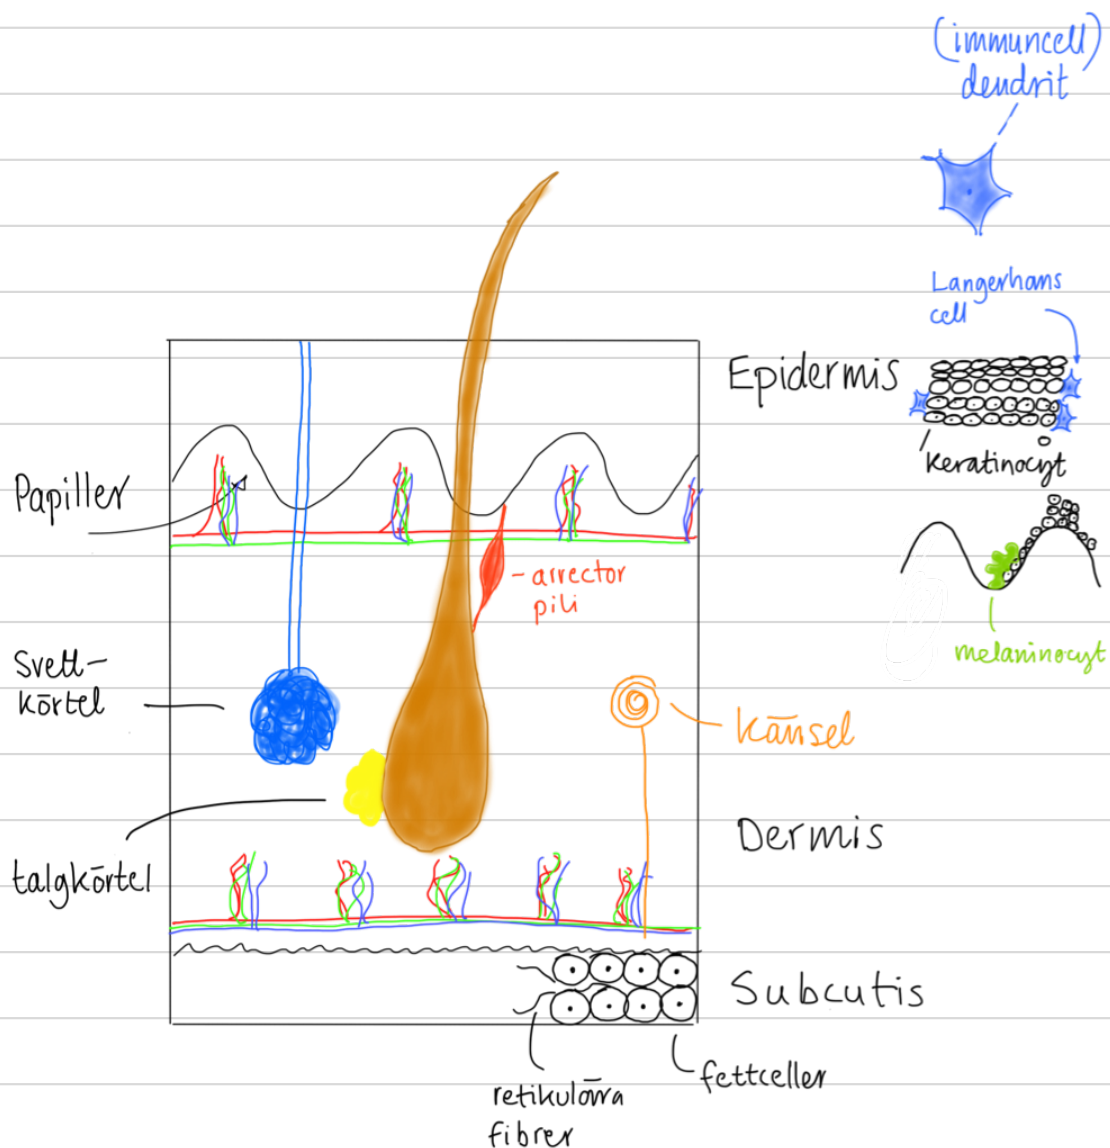 (immuncell)
dendrit
Langerhans
cell
Epidermis
keratinocyt
Papiller
-arrector
pili
melaninocyt
Svett-
körtel
känsel
Dermis
talgkörtel
Subcutis
fettceller
retikulära
fibrer